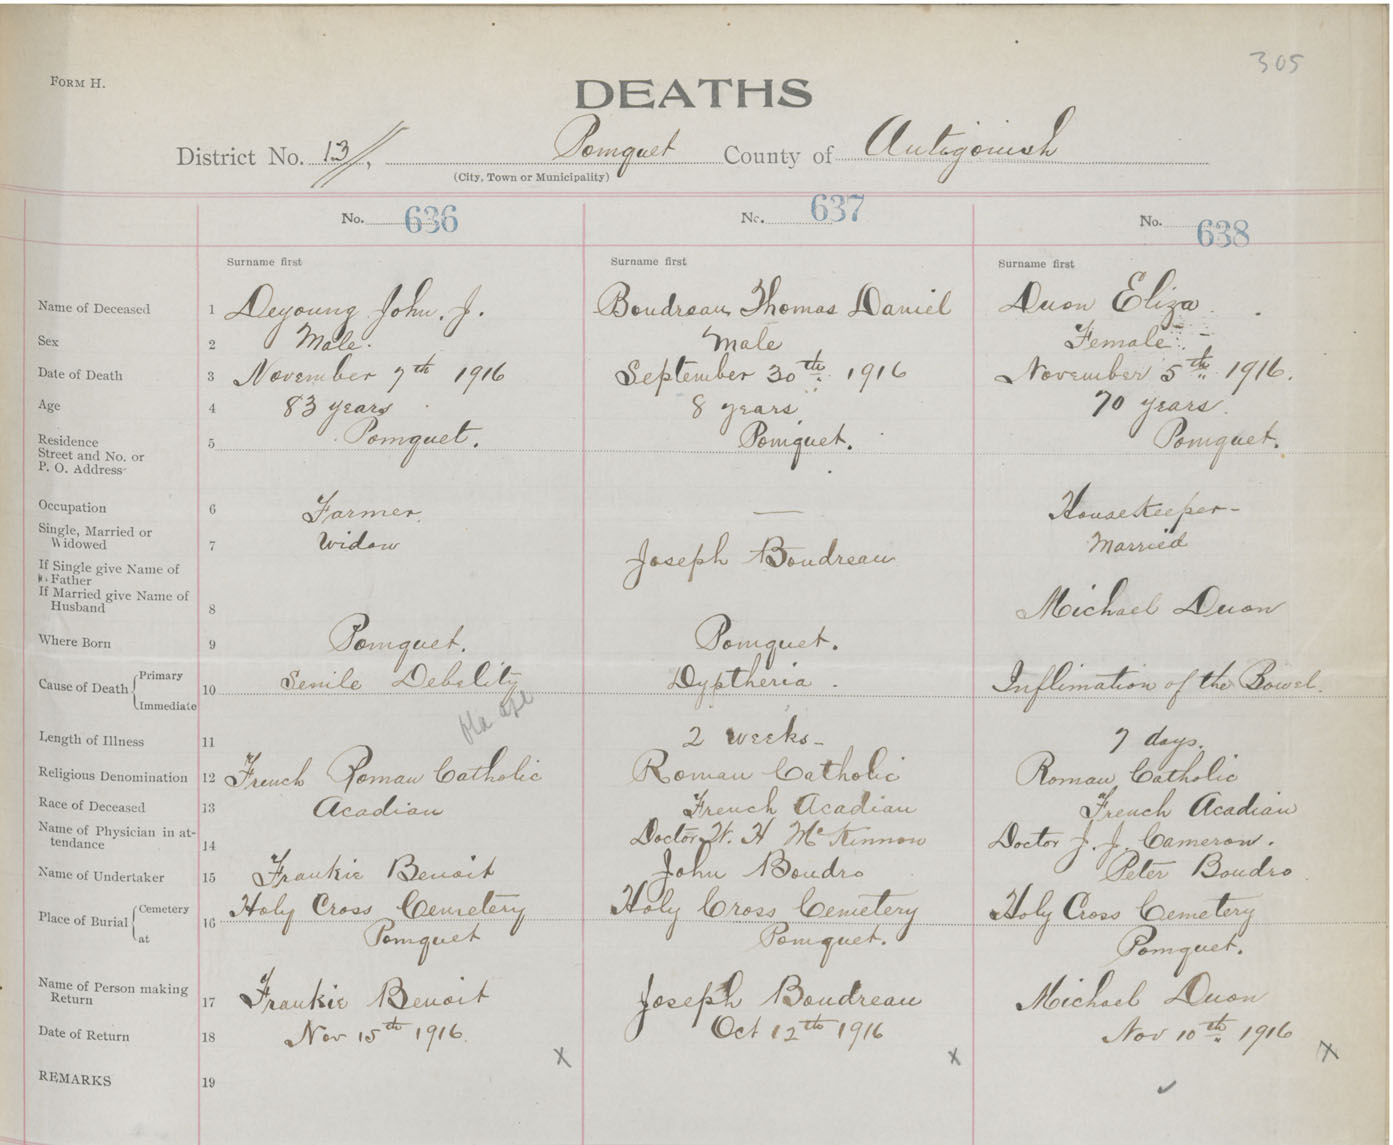 305
FORM H.
DEATHS
District No. 13, Pomquet County of Antigonish
(City, Town or Municipality)
No. 636 No. 637 No. 638
Surname first Surname first Surname first
Name of Deceased 1 Deyoung John. J. Boudreau Thomas Daniel Duon Eliza
Sex 2 Male. Male Female
Date of Death 3 November 7th 1916 September 30th 1916 November 5th 1916.
Age 4 83 years 8 years 70 years.
Residence Street and No. or P. O. Address 5 Pomquet. Pomquet. Pomquet.
Occupation 6 Farmer. — Housekeeper-
Single, Married or Widowed 7 Widow Married
If Single give Name of Father Joseph Boudreau
If Married give Name of Husband 8 Michael Duon
Where Born 9 Pomquet. Pomquet.
Cause of Death { Primary Immediate 10 Senile Debelity Dyptheria. Inflimation of the Bowel.
Length of Illness 11 2 weeks- 7 days.
Religious Denomination 12 French Roman Catholic Roman Catholic Roman Catholic
Race of Deceased 13 Acadian French Acadian French Acadian
Name of Physician in attendance 14 Doctor W. H McKinnon Doctor J. J. Cameron.
Name of Undertaker 15 Frankie Benoit John Boudro Peter Boudro
Place of Burial { Cemetery at 16 Holy Cross Cemetery Holy Cross Cemetery Holy Cross Cemetery
Pomquet Pomquet. Pomquet.
Name of Person making Return 17 Frankie Benoit Joseph Boudreau Michael Duon
Date of Return 18 Nov 15th 1916. Oct 12th 1916 Nov 10th 1916
x x x
REMARKS 19 ✓